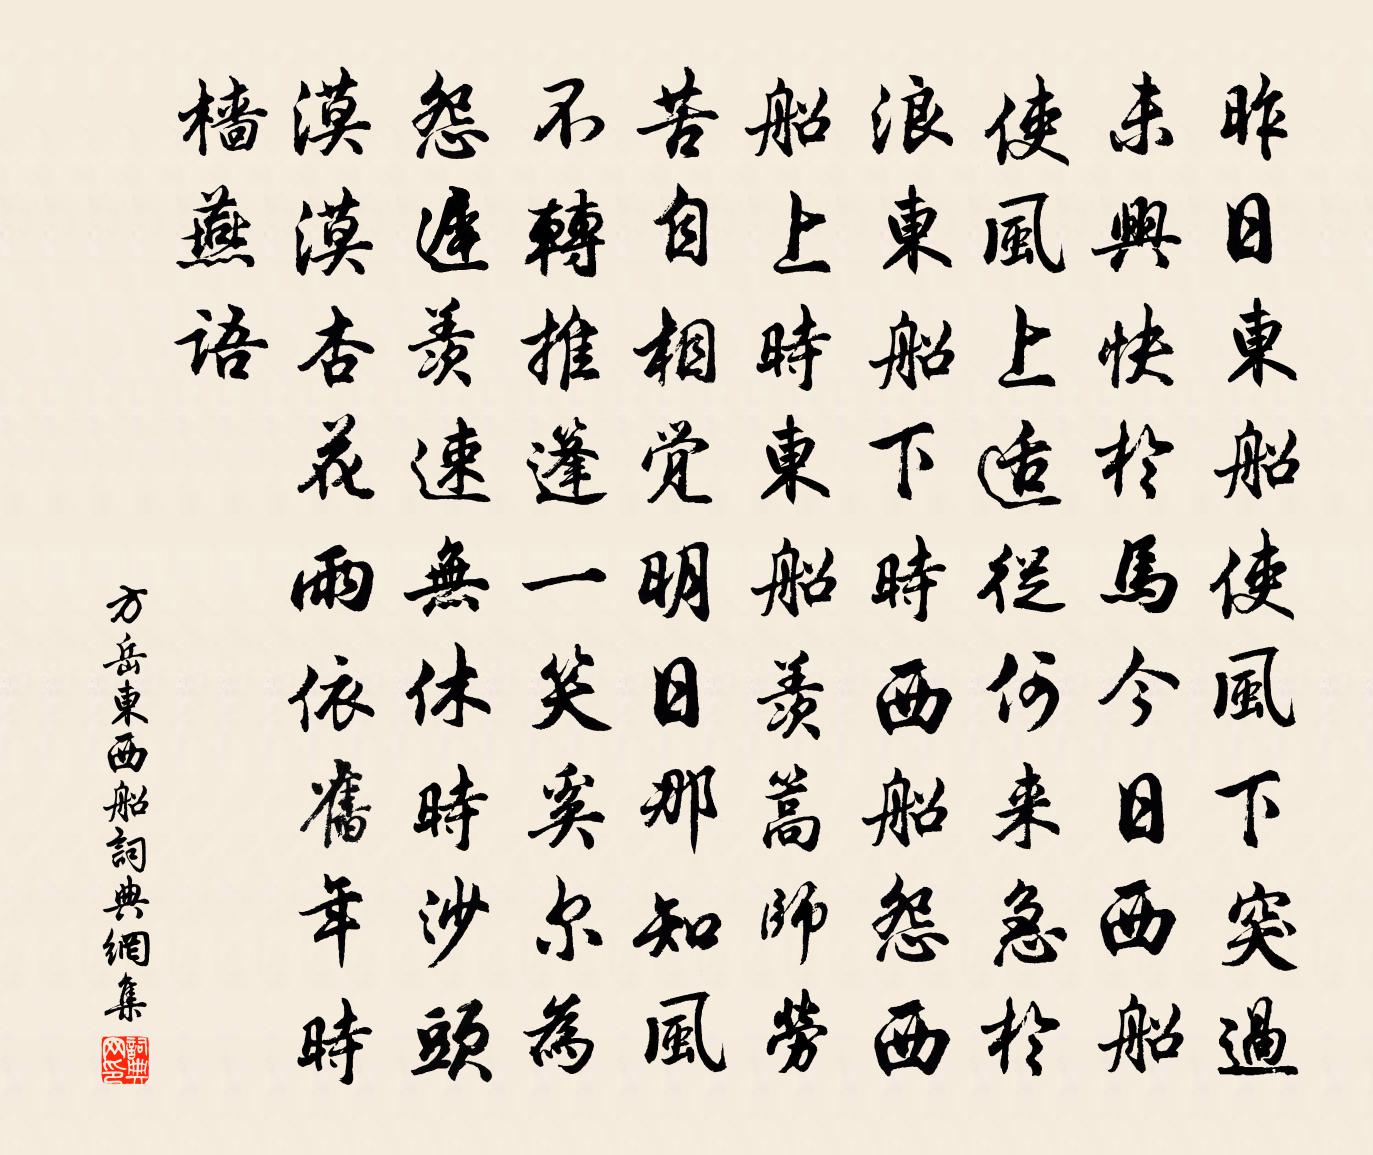 昨日東船使風下突過
未興快於馬今日西船
使風上适從何来急於
浪東船下時西船怨西
船上時東船羨篙師勞
苦自相觉明日那知風
不轉推篷一笑奚尔為
怨遲羨速無休時沙頭
漠漠杏花雨依舊年時
檣燕語
方岳東西船詞典網集
詞典网印